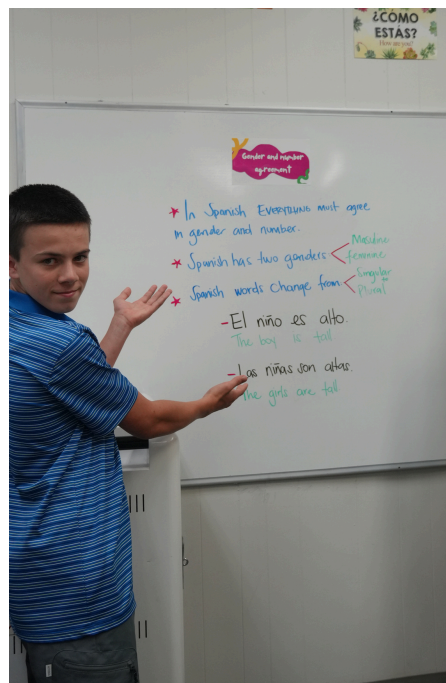 ¿CÓMO
ESTÁS?
How are you?
Gender and number
agreement
★ In Spanish EVERYTHING must agree
in gender and number.
★ Spanish has two genders < Masculine
feminine
★ Spanish words change from < Singular
Plural
- El niño es alto.
The boy is tall
- Las niñas son altas.
The girls are tall.